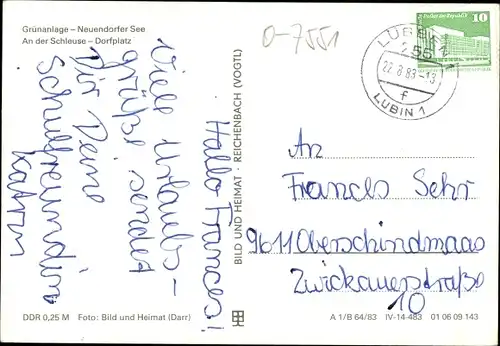 Grünanlage – Neuendorfer See
An der Schleuse – Dorfplatz
0-7551
10
LÜBBEN 1
22.8.83-13
f
LUBIN 1
Hallo Frances!
Viele Urlaubs-
grüße sendet
Dir Deine
Schulfreundin
Katrin
BILD UND HEIMAT · REICHENBACH (VOGTL)
An
Frances Sehr
9611 Oberschindmaas
Zwickauerstraße
10
DDR 0,25 M Foto: Bild und Heimat (Darr)
A 1/B 64/83 IV-14-483 01 06 09 143